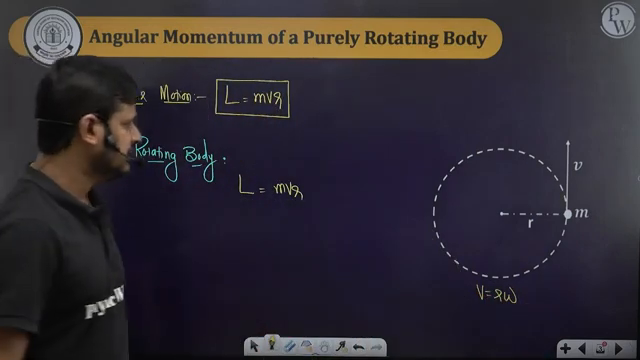 PW
Angular Momentum of a Purely Rotating Body
Motion:- L = mvr
Rotating Body:
L = mvr
v
m
r
V = rω